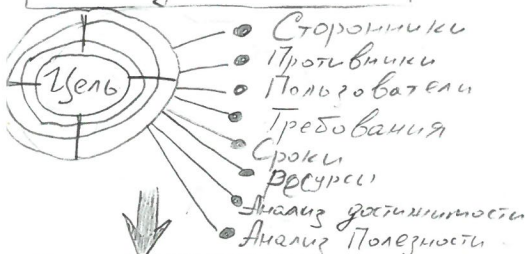 Цель
Сторонники
Противники
Пользователи
Требования
Сроки
Ресурсы
Анализ достижимости
Анализ Полезности